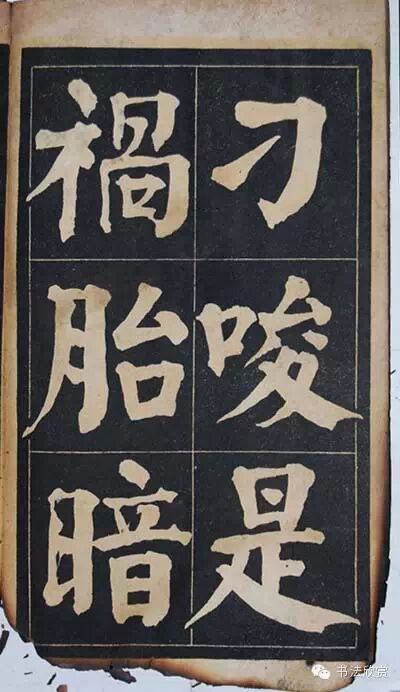 刁唆是
禍胎暗
书法欣赏